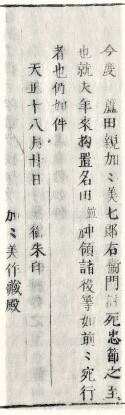 今度 蘆田親加々美七郎右衞門討死忠節之至
也就夫年来拘置名田並神領諸役等如前々宛行
者也仍如件
天正十八月廿日 御朱印
加々美作藏殿